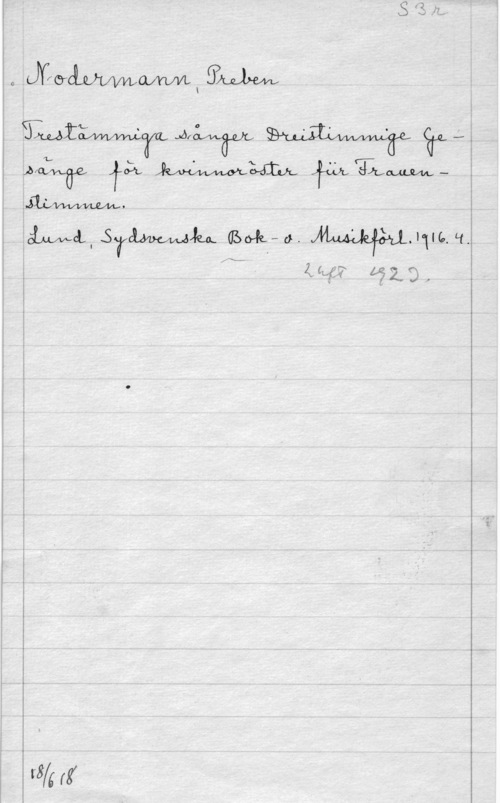 S 3 r
Nodermann, Preben
Trestämmiga sånger Dreistimmige Ge-
sänge för kvinnoröster für Frauen-
stimmen.
Lund, Sydsvenska Bok- o. Musikförl. 1916. 4.
18/6 18